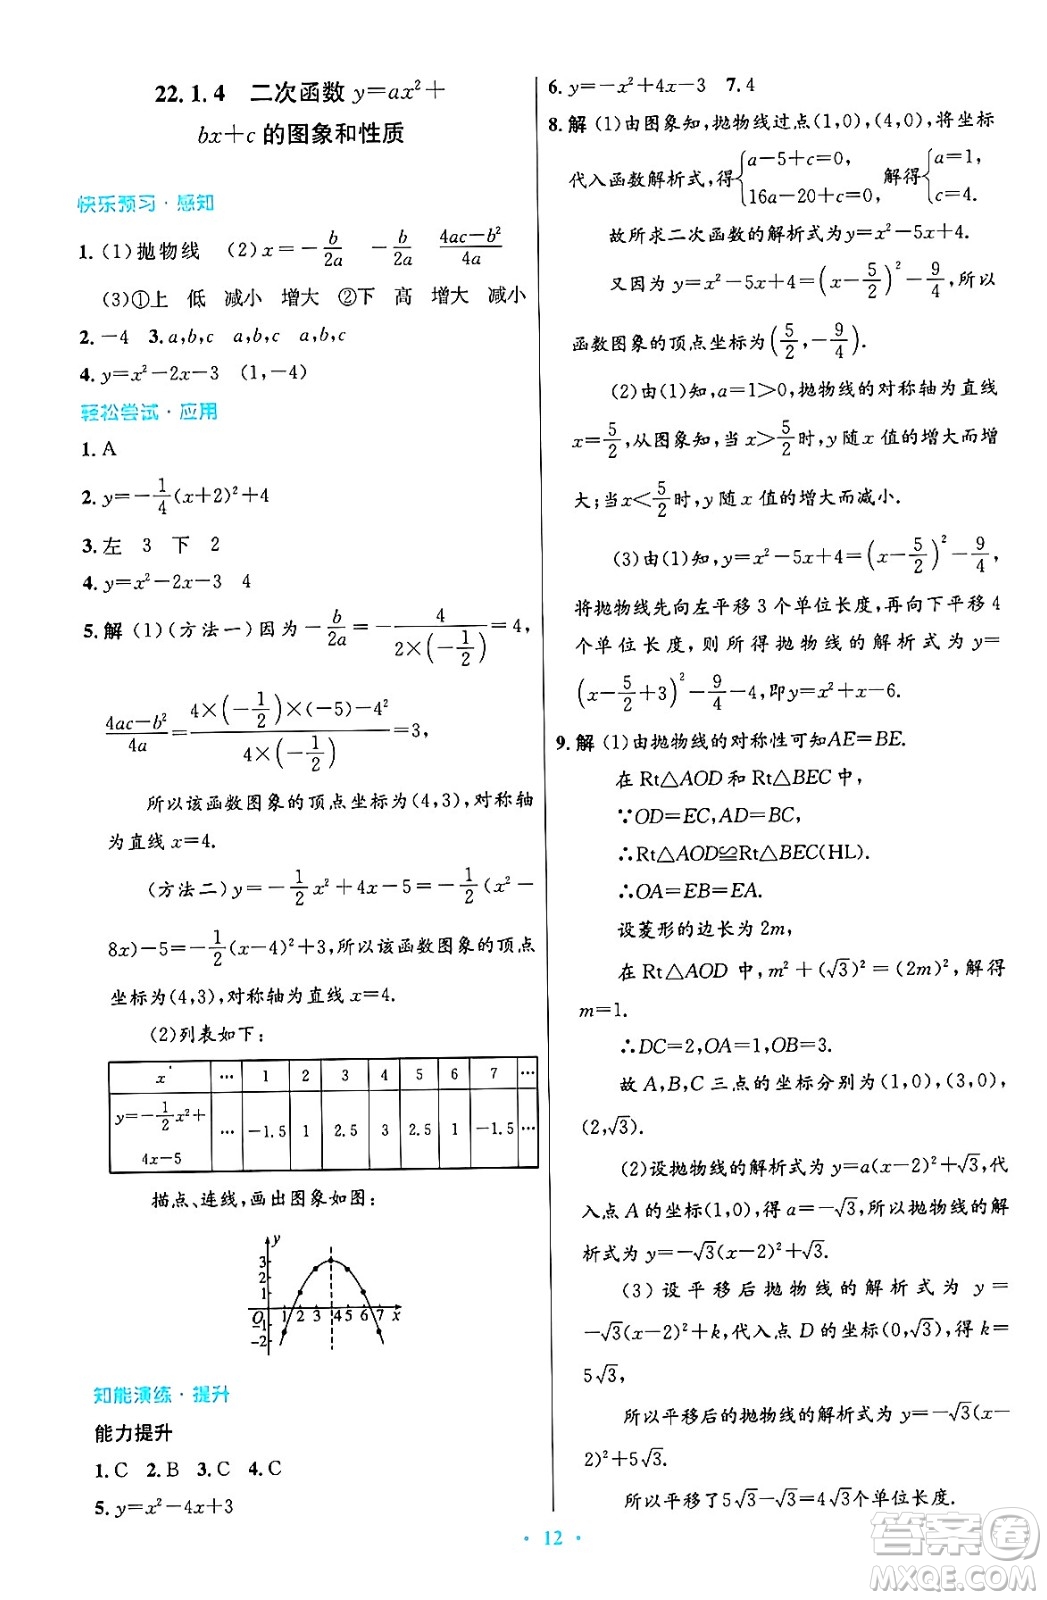 22.1.4 二次函数 y=ax²+
bx+c 的图象和性质
快乐预习·感知
1.(1)抛物线 (2)x=-\frac{b}{2a} -\frac{b}{2a} \frac{4ac-b²}{4a}
(3)①上 低 减小 增大 ②下 高 增大 减小
2.-4 3.a,b,c a,b,c a,b,c
4.y=x²-2x-3 (1,-4)
轻松尝试·应用
1.A
2.y=-\frac{1}{4}(x+2)²+4
3.左 3 下 2
4.y=x²-2x-3 4
5.解 (1)(方法一)因为-\frac{b}{2a}=-\frac{4}{2×(-\frac{1}{2})}=4,
\frac{4ac-b²}{4a}=\frac{4×(-\frac{1}{2})×(-5)-4²}{4×(-\frac{1}{2})}=3,
所以该函数图象的顶点坐标为(4,3),对称轴
为直线x=4.
(方法二)y=-\frac{1}{2}x²+4x-5=-\frac{1}{2}(x²-
8x)-5=-\frac{1}{2}(x-4)²+3,所以该函数图象的顶点
坐标为(4,3),对称轴为直线x=4.
(2)列表如下:
x … 1 2 3 4 5 6 7 …
y=-\frac{1}{2}x²+
4x-5 … -1.5 1 2.5 3 2.5 1 -1.5 …
描点、连线,画出图象如图:
y
3
2
1
O 1 2 3 4 5 6 7 x
-1
-2
知能演练·提升
能力提升
1.C 2.B 3.C 4.C
5.y=x²-4x+3
6.y=-x²+4x-3 7.4
8.解 (1)由图象知,抛物线过点(1,0),(4,0),将坐标
代入函数解析式,得{a-5+c=0, 16a-20+c=0, 解得{a=1, c=4.
故所求二次函数的解析式为y=x²-5x+4.
又因为y=x²-5x+4=(x-\frac{5}{2})²-\frac{9}{4},所以
函数图象的顶点坐标为(\frac{5}{2},-\frac{9}{4}).
(2)由(1)知,a=1>0,抛物线的对称轴为直线
x=\frac{5}{2},从图象知,当x>\frac{5}{2}时,y随x值的增大而增
大;当x<\frac{5}{2}时,y随x值的增大而减小.
(3)由(1)知,y=x²-5x+4=(x-\frac{5}{2})²-\frac{9}{4},
将抛物线先向左平移3个单位长度,再向下平移4
个单位长度,则所得抛物线的解析式为y=
(x-\frac{5}{2}+3)²-\frac{9}{4}-4,即y=x²+x-6.
9.解 (1)由抛物线的对称性可知AE=BE.
在Rt△AOD和Rt△BEC中,
∵OD=EC,AD=BC,
∴Rt△AOD≌Rt△BEC(HL).
∴OA=EB=EA.
设菱形的边长为2m,
在Rt△AOD中,m²+(√3)²=(2m)²,解得
m=1.
∴DC=2,OA=1,OB=3.
故A,B,C三点的坐标分别为(1,0),(3,0),
(2,√3).
(2)设抛物线的解析式为y=a(x-2)²+√3,代
入点A的坐标(1,0),得a=-√3,所以抛物线的解
析式为y=-√3(x-2)²+√3.
(3)设平移后抛物线的解析式为y=
-√3(x-2)²+k,代入点D的坐标(0,√3),得k=
5√3
所以平移后的抛物线的解析式为y=-√3(x-
2)²+5√3.
所以平移了5√3-√3=4√3个单位长度.
· 12 ·
答案卷
MXQE.COM